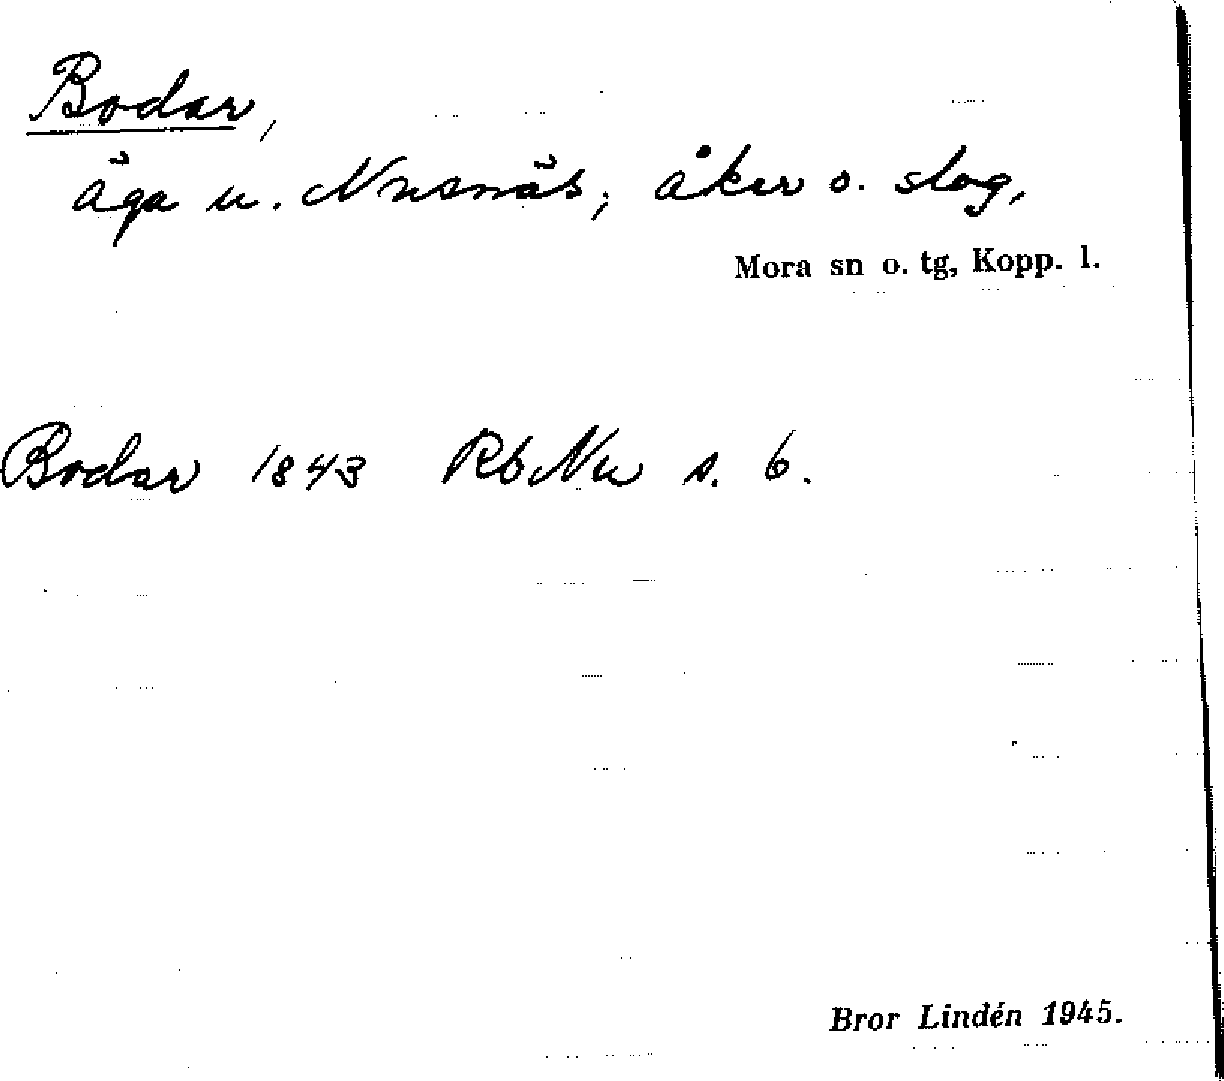 Bodar,
äga u. Nusnäs; åker o. slog,
Mora sn o. tg, Kopp. l.
Bodar 1843 RbNu s. 6.
Bror Lindén 1945.